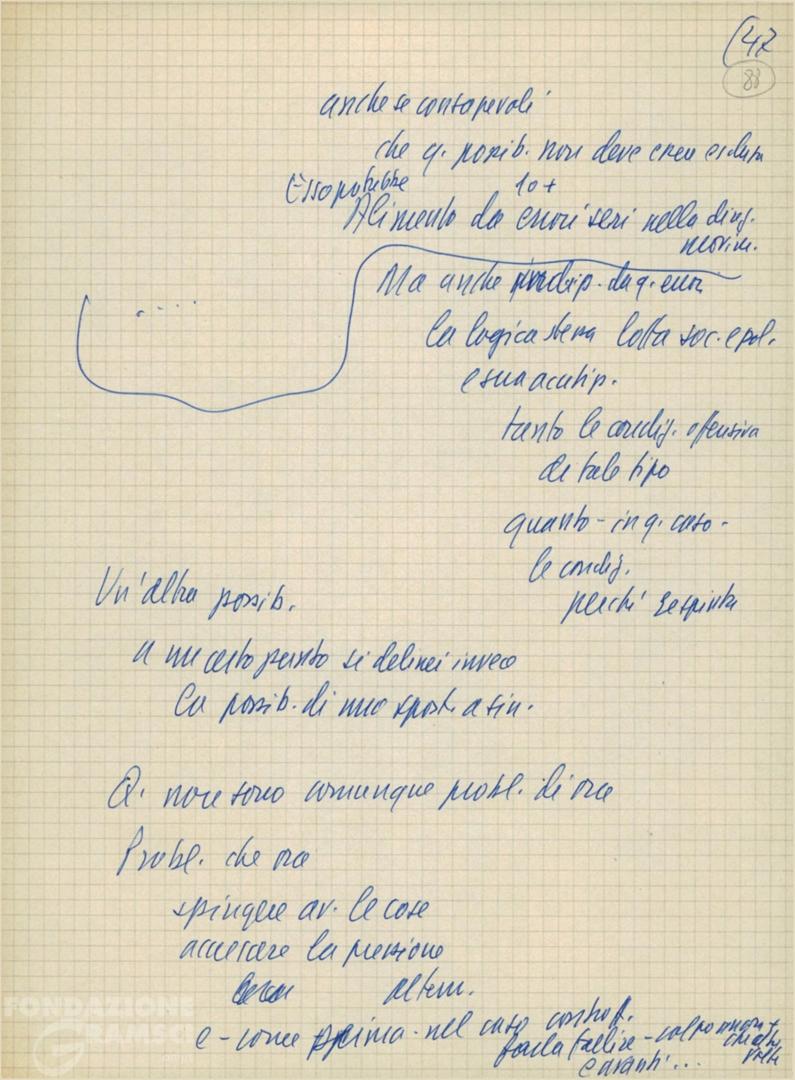 (47
88
anche se consapevoli
che q. possib. non deve essere esclusa
Esso potrebbe 10+
Alimento da errori seri nella direz.
movim.
Ma anche indip. da q. errori
la logica stessa lotta soc. e pol.
e sua acutiz.
tanto le condiz. offensiva
di tale tipo
quanto - in q. caso -
le condiz.
perché respinta
Un'altra possib.
a un certo punto si delinei invece
la possib. di uno spost. a sin.
Q. non sono comunque probl. di ora
Probl. che ora
spingere av. le cose
accrescere la pressione
altern.
e - come prima - nel caso
farla fallire - colpo
e avanti...
FONDAZIONE
GRAMSCI